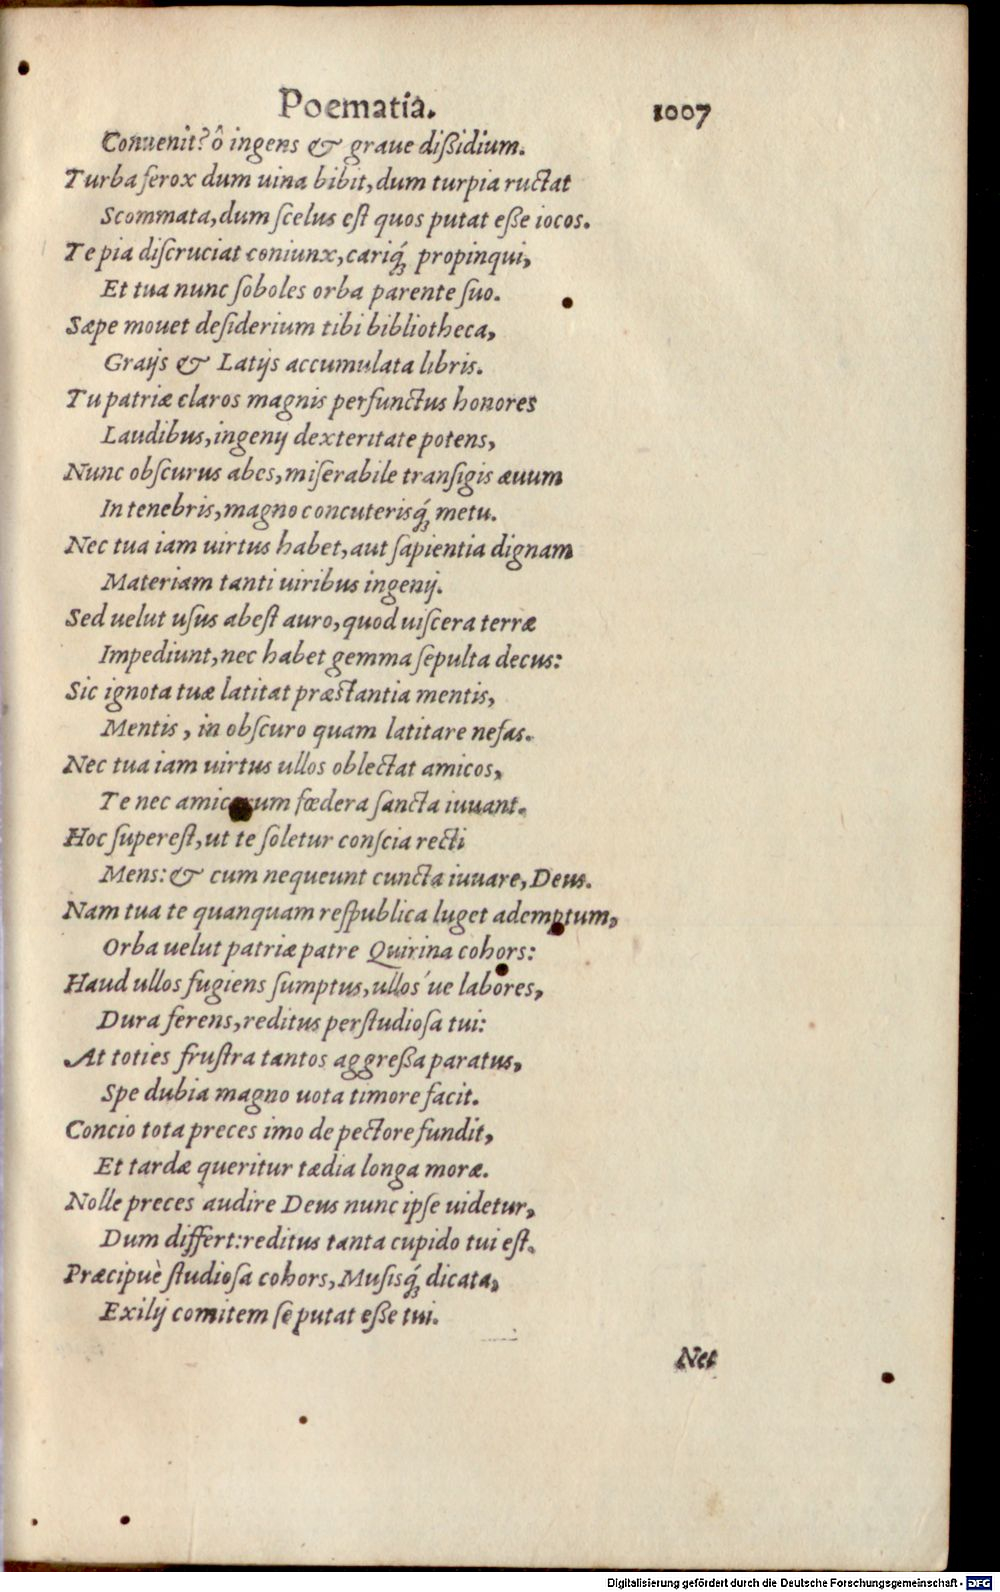 Poematia. 1007
Conuenit? ô ingens & graue dißidium.
Turba ferox dum uina bibit, dum turpia ructat
Scommata, dum scelus est quos putat eße iocos.
Te pia discruciat coniunx, cariq́; propinqui,
Et tua nunc soboles orba parente suo.
Sæpe mouet desiderium tibi bibliotheca,
Graijs & Latijs accumulata libris.
Tu patriæ claros magnis perfunctus honores
Laudibus, ingenij dexteritate potens,
Nunc obscurus abes, miserabile transigis æuum
In tenebris, magno concuterisq́; metu.
Nec tua iam uirtus habet, aut sapientia dignam
Materiam tanti uiribus ingenij.
Sed uelut usus abest auro, quod uiscera terræ
Impediunt, nec habet gemma sepulta decus:
Sic ignota tuæ latitat præstantia mentis,
Mentis, in obscuro quam latitare nefas.
Nec tua iam uirtus ullos oblectat amicos,
Te nec amicorum fœdera sancta iuuant.
Hoc superest, ut te soletur conscia recti
Mens: & cum nequeunt cuncta iuuare, Deus.
Nam tua te quanquam respublica luget ademptum,
Orba uelut patriæ patre Quirina cohors:
Haud ullos fugiens sumptus, ullos´ue labores,
Dura ferens, reditus perstudiosa tui:
At toties frustra tantos aggreßa paratus,
Spe dubia magno uota timore facit.
Concio tota preces imo de pectore fundit,
Et tardæ queritur tædia longa moræ.
Nolle preces audire Deus nunc ipse uidetur,
Dum differt: reditus tanta cupido tui est.
Præcipuè studiosa cohors, Musisq́; dicata,
Exilij comitem se putat eße tui.
Nec
Digitalisierung gefördert durch die Deutsche Forschungsgemeinschaft - DFG